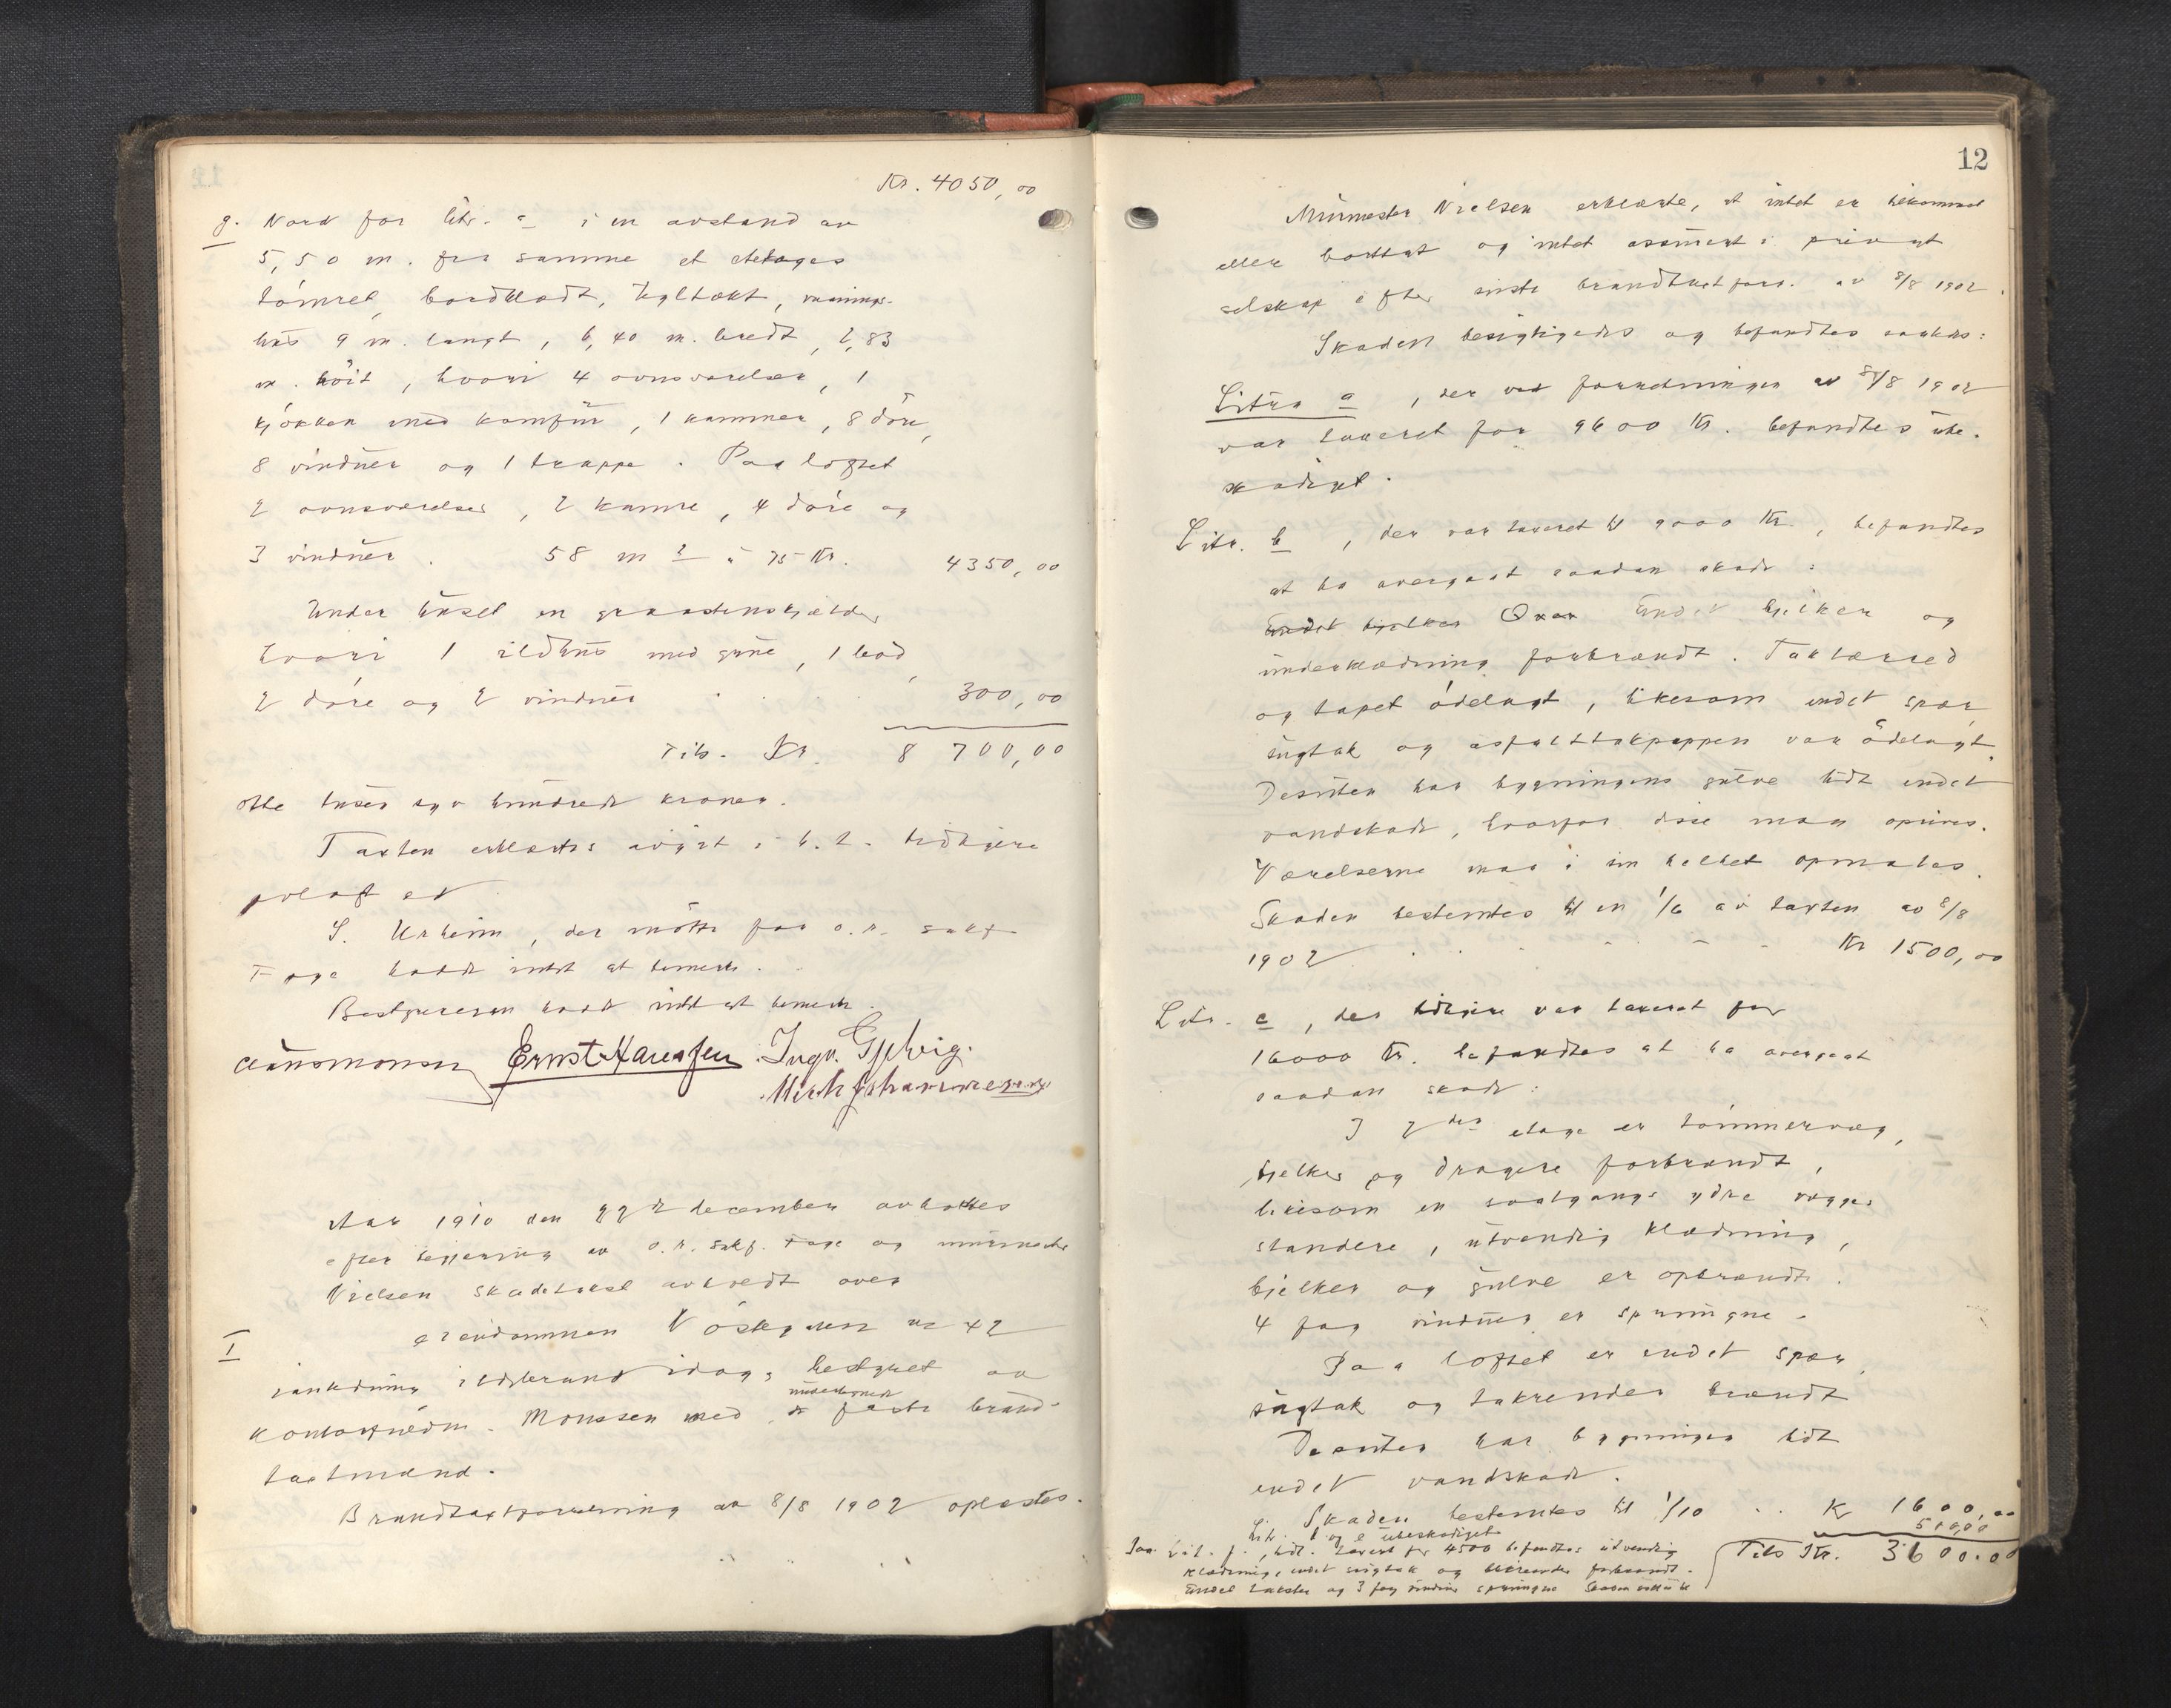 Kr. 4050,00
g. Nord for litr. a i en avstand av
5,50 m. fra samme et etetages
tømret, bordklædt, tegltækt, vaanings-
hus 9 m. langt, 6,40 m. bredt, 2,83
m. høit, hvori 4 ovnsværelser, 1
kjøkken med komfür, 1 kammer, 8 døre,
8 vindüer og 1 trappe. Paa loftet
2 ovnsværelser, 2 kamre, 4 døre og
3 vindüer. 58 m2 à 75 Kr. 4350,00
Under hüset en graastenskjælder
hvori 1 ildhüs med grue, 1 bod,
2 døre og 2 vindüer . . . 300,00
Tils. Kr. 8 700,00
otte tusen syv hündrede kroner.
Taxten erklærtes avgit i h. t. tidligere
avlagt ed
S. Urheim, der møtte for o.r. sakf.
Fage hadde intet at bemerke.
Bestyreren hadde intet at bemerke.
Claus Monsen Ernst Hansen Ingv. Gjelvig.
Mich Johannesen
Aar 1910 den 22de december avholdtes
efter begjæring av o.r. sakf. Fage og mürmester
Nielsen skadetakst avholdt over
I eiendommen Vöskgaten nr 42
i anledning ildebrand idag, bestyret av
undertegnede
kontorfuldm. Monssen med faste brand-
taxtmænd.
Brandtaxtforretning av 8/8 1902 oplæstes.
12
Mürmester Nielsen erklærte, at intet er tilkommet
eller borttat og intet assürert i privat
selskap efter sidste brandtaxtforr. av 8/8 1902.
Skaden besigtigedes og befandtes saaledes:
Litra a, der ved forretningen av 8/8 1902
var taxeret for 9600 Kr. befandtes übe-
skadiget.
Litr. b, der var taxeret til 9000 Kr., befandtes
at ha overgaat saadan skade:
Endel bjelker Endel bjelker og
ünderklædning forbrændt. Taklærred
og tapet ødelagt, likesom endel spær,
sügtak og asfalttakpappen var ødelagt.
Desüten har bygningens gülve lidt endel
vandskade, hvorfor disse maa oprives.
Værelserne maa i sin helhet opmales.
Skaden bestemtes til en 1/6 av taxten av 8/8
1902 . . . . . Kr 1500,00
Litr. c, der tidligere var taxeret for
16000 Kr. befandtes at ha overgaat
saadan skade:
I 2den etage er tømmervæg,
bjelker og dragere forbrændt,
likesom en svalgangs ydre vægge,
standere, ütvendig klædning,
bjelker og gülve er opbrændt.
4 fag vindüer er sprüngne.
Paa loftet er endel spær,
sügtak og takrender brændt
Desüten har bygningen lidt
endel vandskade.
Skaden bestemtes til 1/10 . . K 1600,00
Litr. d og e übeskadiget
500,00
Litr. f., tidl. taxert for 4500 befandtes ütvendig
Tils Kr. 3600.00
klædning, endel sügtak og forbrændt.
Endel taksten og 3 fag vindüer sprüngne